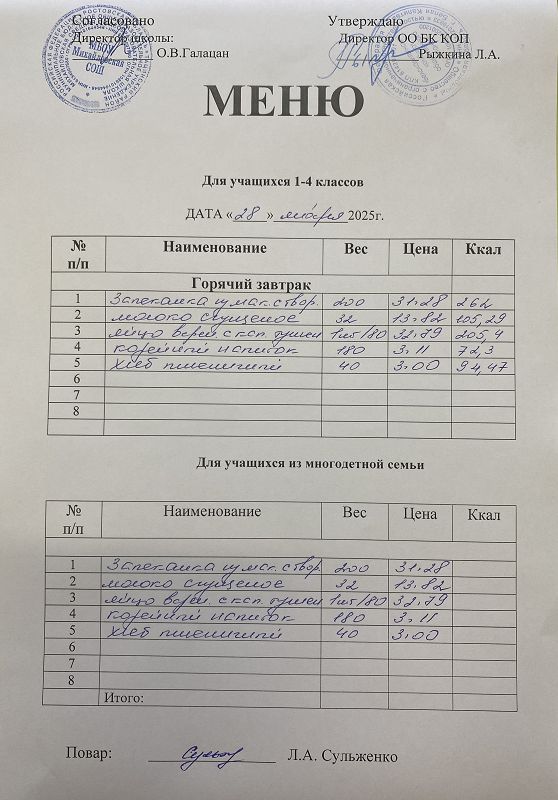 Согласовано Утверждаю
Директор школы: Директор ОО БК КОП
О.В.Галацан Рыжкина Л.А.
МЕНЮ
Для учащихся 1-4 классов
ДАТА «28» января 2025г.
№ п/п Наименование Вес Цена Ккал
Горячий завтрак
1 Запеканка из мак. с твор. 200 31.28 262
2 молоко сгущеное 32 13.82 105,29
3 яйцо варен. с кап. тушен 1шт/80 32.79 205,4
4 кофейный напиток 180 3.11 72,3
5 хлеб пшеничный 40 3.00 94,47
6
7
8
Для учащихся из многодетной семьи
№ п/п Наименование Вес Цена Ккал
1 Запеканка из мак. с твор. 200 31.28
2 молоко сгущеное 32 13.82
3 яйцо варен. с кап. тушен 1шт/80 32.79
4 кофейный напиток 180 3.11
5 хлеб пшеничный 40 3.00
6
7
8
Итого:
Повар: Л.А. Сульженко